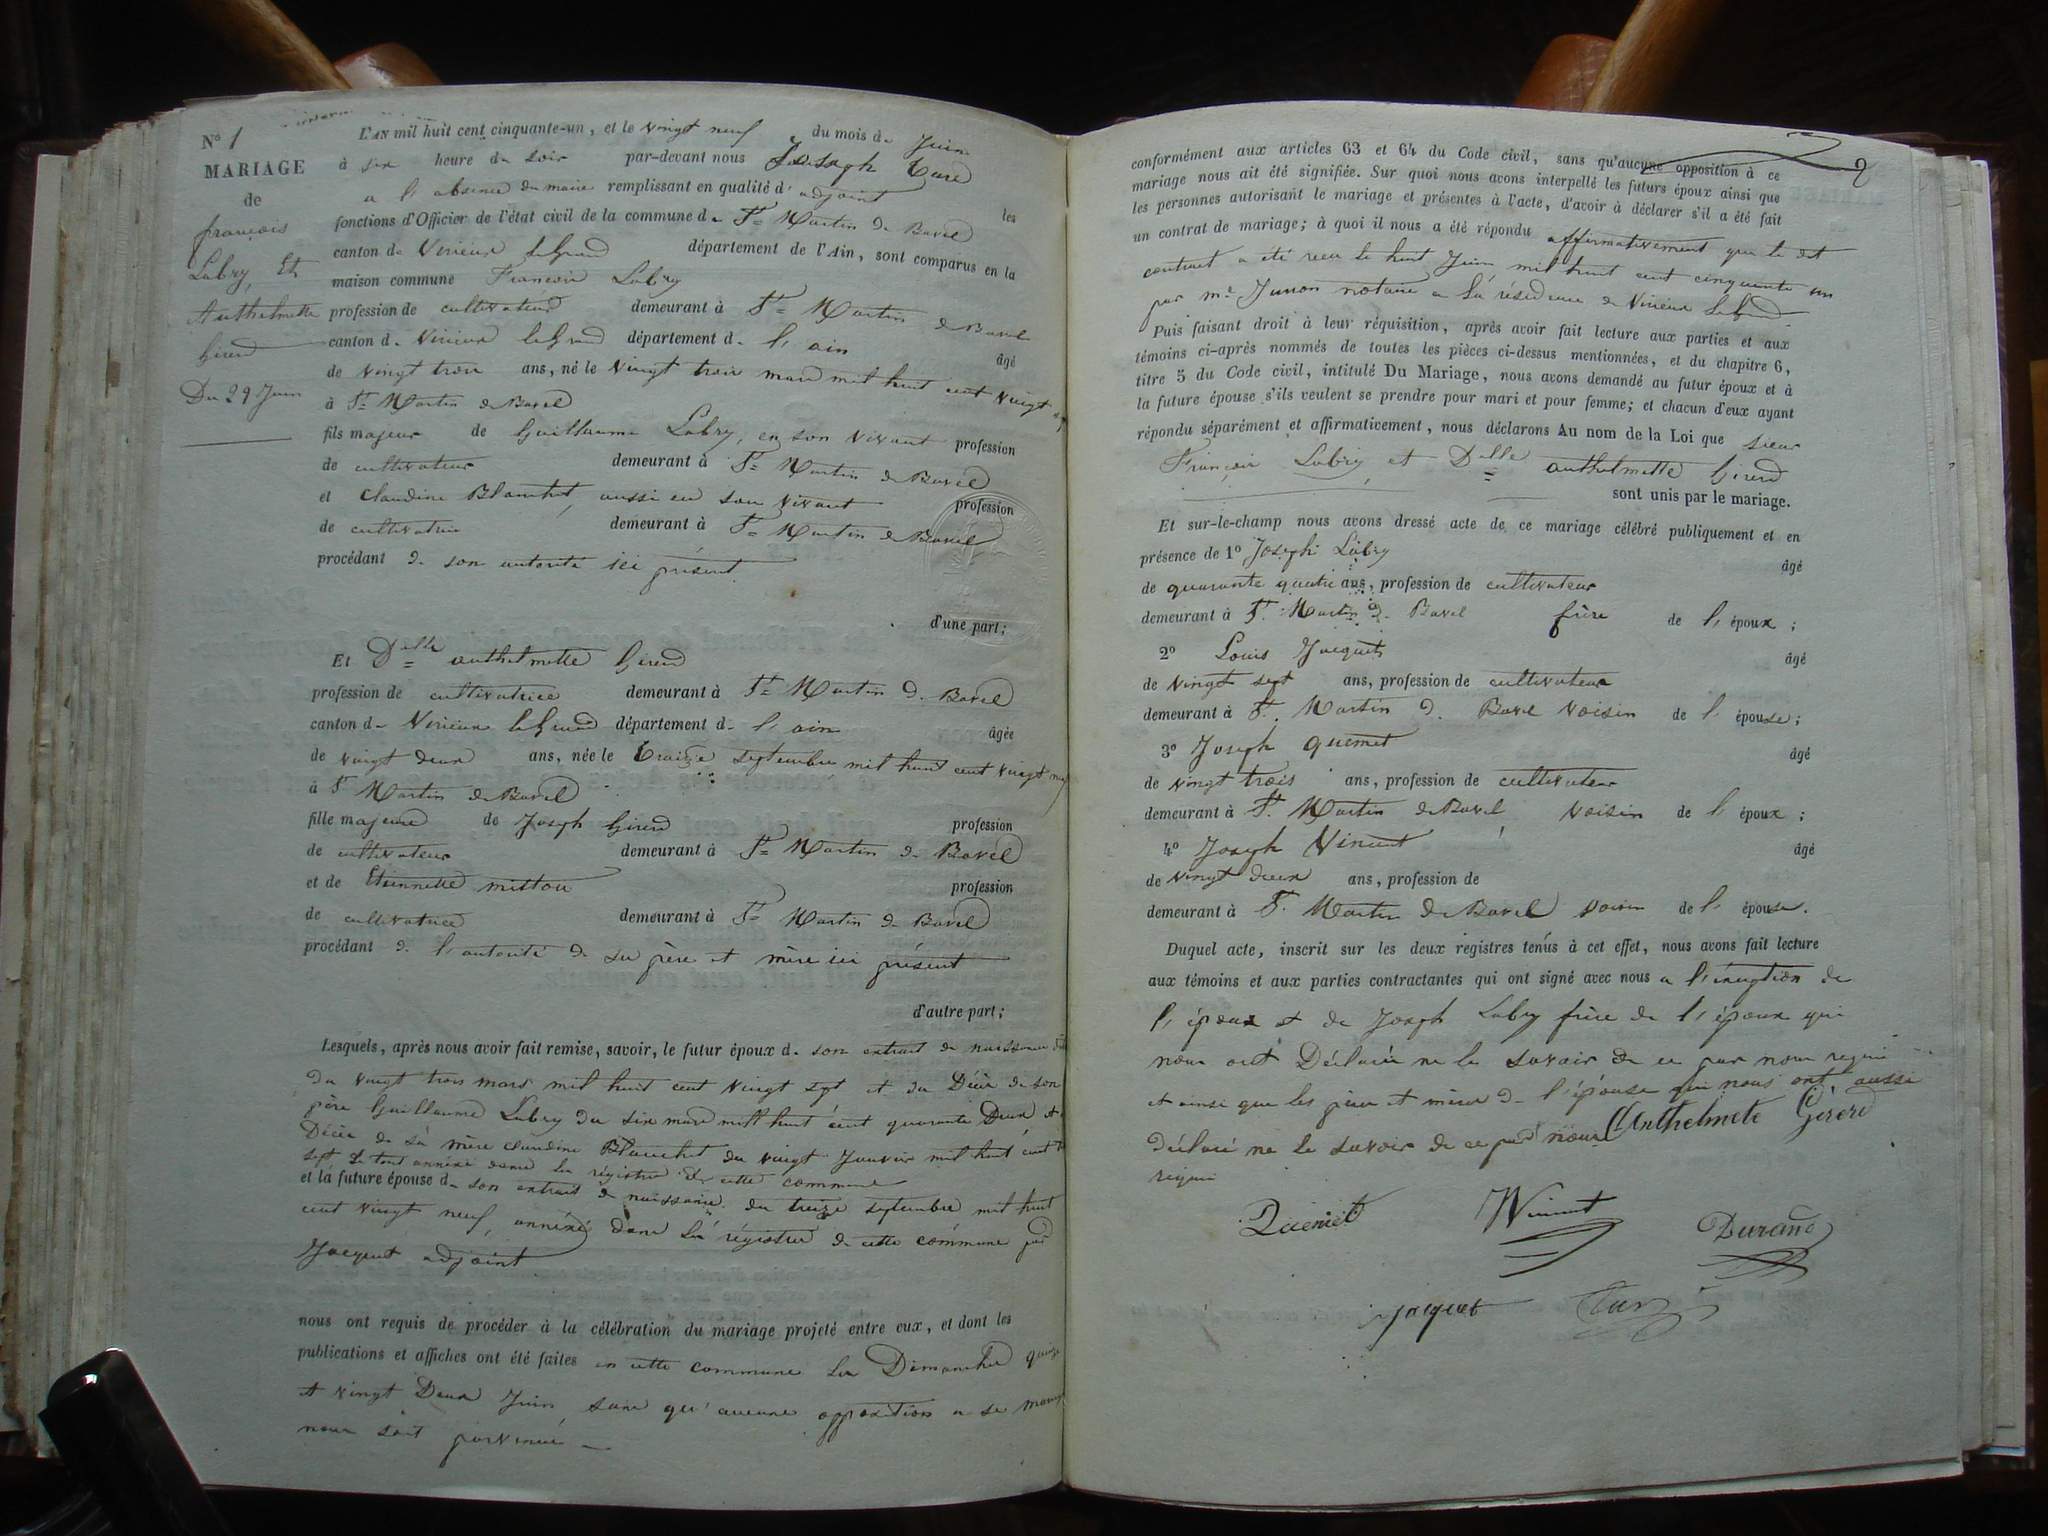 Nº 1
MARIAGE
de
françois
Labry, Et
Anthelmette
Girerd
Du 29 Juin
L'AN mil huit cent cinquante-un, et le vingt neuf du mois de Juin
à six heure du soir par-devant nous Joseph
a l'absence du maire remplissant en qualité d'adjoint les
fonctions d'Officier de l'état civil de la commune de St Martin de Bavel
canton de Virieux leGrand département de l'Ain, sont comparus en la
maison commune François Labry
profession de cultivateur demeurant à St Martin de Bavel
canton de Virieux leGrand département de l'ain âgé
de vingt trois ans, né le vingt trois mars mil huit cent vingt
à St Martin de Bavel
fils majeur de Guillaume Labry, en son vivant profession
de cultivateur demeurant à St Martin de Bavel
et Claudine Blanchet, aussi en son vivant profession
de cultivatrice demeurant à St Martin de Bavel
procédant de son autorité ici présent
d'une part;
Et Delle anthelmette Girerd
profession de cultivatrice demeurant à St Martin de Bavel
canton de Virieux leGrand département de l'ain âgée
de vingt deux ans, née le Treize septembre mil huit cent vingt neuf
à St Martin de Bavel
fille majeure de Joseph Girerd profession
de cultivateur demeurant à St Martin de Bavel
et de Etiennette mitton profession
de cultivatrice demeurant à St Martin de Bavel
procédant de l'autorité de ses père et mère ici présent
d'autre part;
Lesquels, après nous avoir fait remise, savoir, le futur époux de son extrait de naissance
du vingt trois mars mil huit cent vingt sept et du Décès de son
père Guillaume Labry du six mars mil huit cent quarante Deux et
Décès de sa mère claudine Blanchet du vingt Janvier mil huit cent
sept le tout annexé dans les régistres de cette commune
et la future épouse de son extrait de naissance du treize septembre mil huit
cent vingt neuf, annéxé dans les régistres de cette commune par
Jacquet adjoint
nous ont requis de procéder à la célébration du mariage projeté entre eux, et dont les
publications et affiches ont été faites en cette commune les Dimanches quinze
et vingt Deux Juin, sans qu'aucune opposition a se mariage
nous soit parvenue
2
conformément aux articles 63 et 64 du Code civil, sans qu'aucune opposition à ce
mariage nous ait été signifiée. Sur quoi nous avons interpellé les futurs époux ainsi que
les personnes autorisant le mariage et présentes à l'acte, d'avoir à déclarer s'il a été fait
un contrat de mariage; à quoi il nous a été répondu affirmativement que le dit
contract a été recu le huit Juin mil huit cent cinquante un
par me Junon notaire a sa résidence de Virieux leGrand
Puis faisant droit à leur réquisition, après avoir fait lecture aux parties et aux
témoins ci-après nommés de toutes les pièces ci-dessus mentionnées, et du chapitre 6,
titre 5 du Code civil, intitulé Du Mariage, nous avons demandé au futur époux et à
la future épouse s'ils veulent se prendre pour mari et pour femme; et chacun d'eux ayant
répondu séparément et affirmativement, nous déclarons Au nom de la Loi que sieur
François Labry, et Delle anthelmette Girerd
sont unis par le mariage.
Et sur-le-champ nous avons dressé acte de ce mariage célébré publiquement et en
présence de 1º Joseph Labry âgé
de quarante quatre ans, profession de cultivateur
demeurant à St. Martin de Bavel frère de l'époux;
2º Louis Jacquet âgé
de vingt sept ans, profession de cultivateur
demeurant à St. Martin de Bavel voisin de l'épouse;
3º Joseph quemet âgé
de vingt trois ans, profession de cultivateur
demeurant à St. Martin de Bavel voisin de l'époux;
4º Joseph Vincent âgé
de vingt deux ans, profession de
demeurant à St. Martin de Bavel voisin de l'épouse.
Duquel acte, inscrit sur les deux registres tenus à cet effet, nous avons fait lecture
aux témoins et aux parties contractantes qui ont signé avec nous a l'éxeption de
l'époux et de Joseph Labry frère de l'époux qui
nous ont Déclaré ne le savoir de ce par nous requis
et ainsi que les père et mère de l'épouse qui nous ont aussi
déclaré ne le savoir de ce par nous Anthelmete Girerd
requis
Vincent
Durand
jacquet